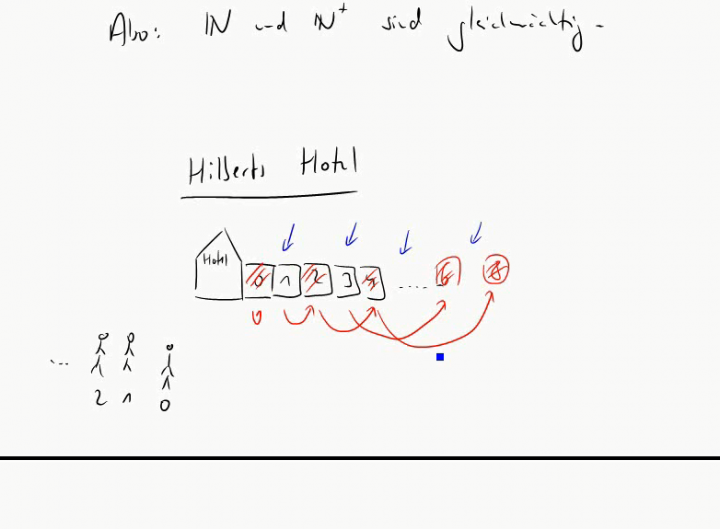 Also: ℕ und ℕ⁺ sind gleichmächtig.
Hilberts Hotel
Hotel 0 1 2 3 4 ..... 6 8
0
... 2 1 0